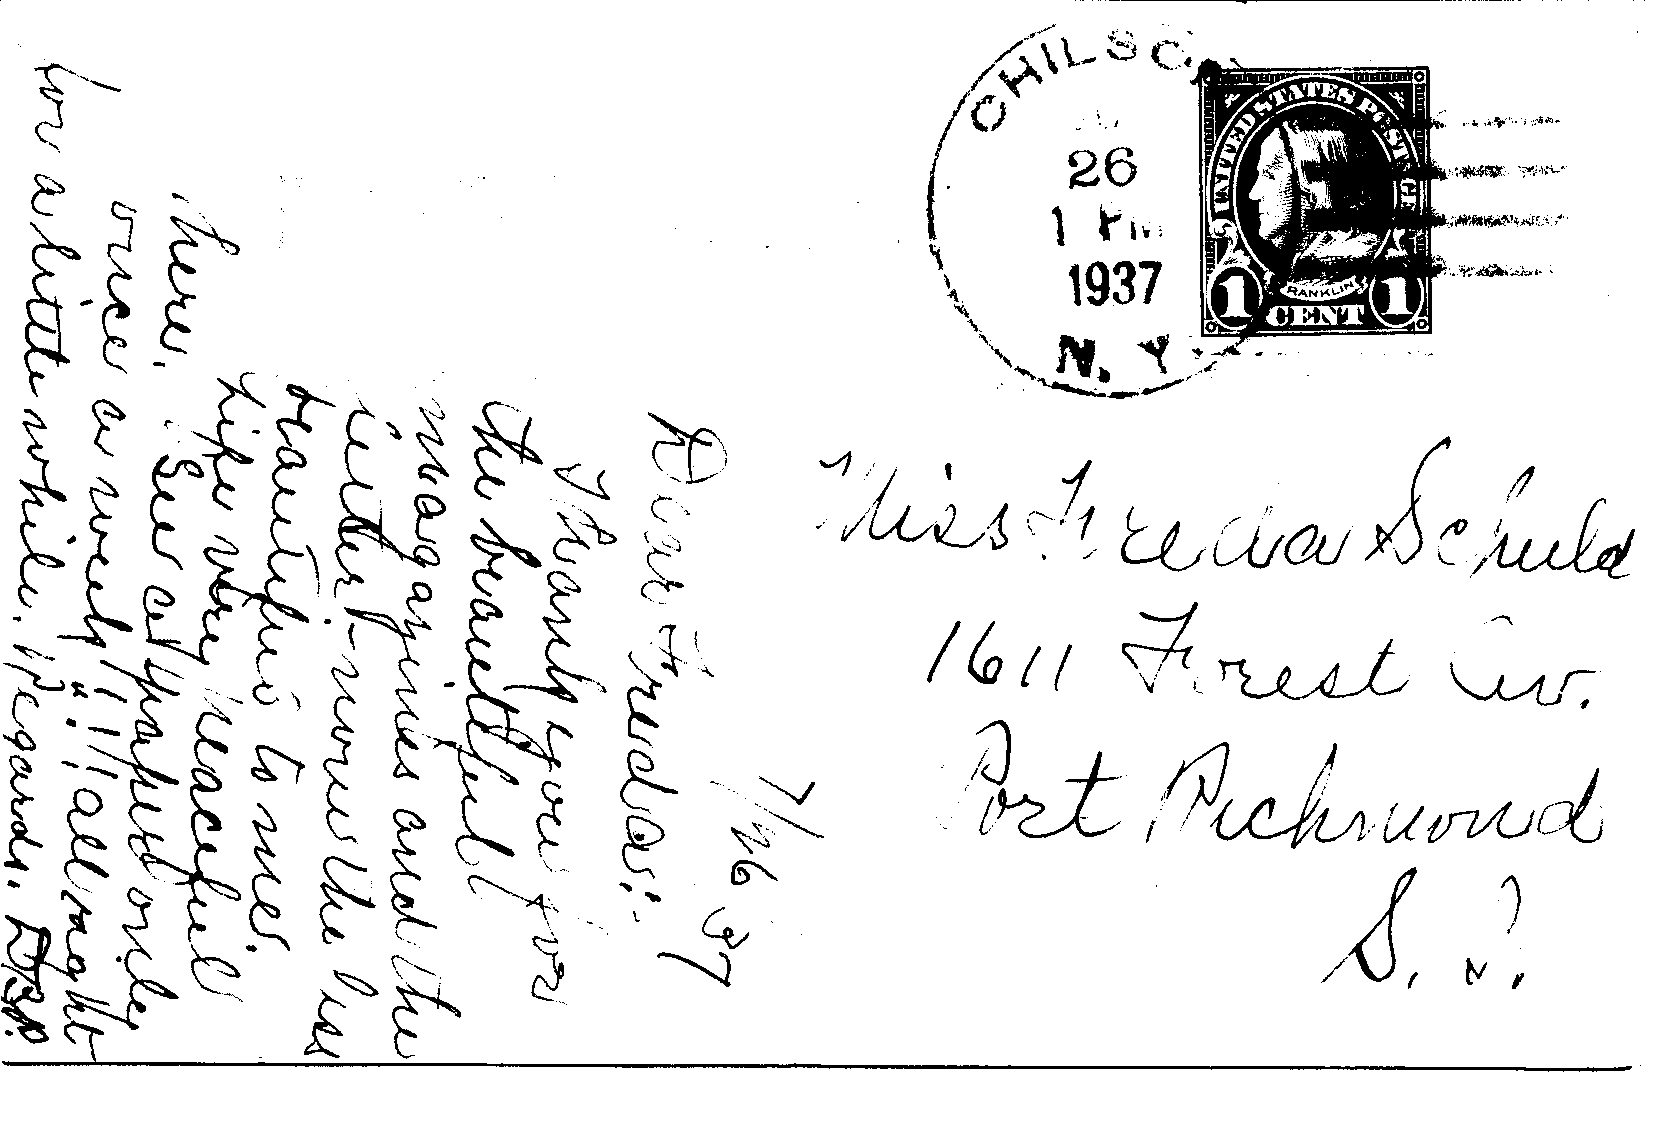 CHILSO
26
1 PM
1937
N. Y.
UNITED STATES POSTAGE
FRANKLIN
1 CENT 1
Miss Freda Schuld
1611 Forest Av.
Port Richmond
S. I.
7/26 37
Dear Fredas:-
Thank you for
the beautiful
magazines and the
letter - more the less
beautiful to me.
Life very peaceful
here.
See at you only
once a week!!! all right
for a little while. Regards.